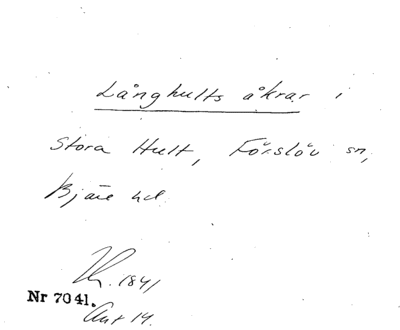 Långhults åkrar i
Stora Hult, Förslöv sn,
Bjäre hd
1841
Nr 7041.
Akt 14.